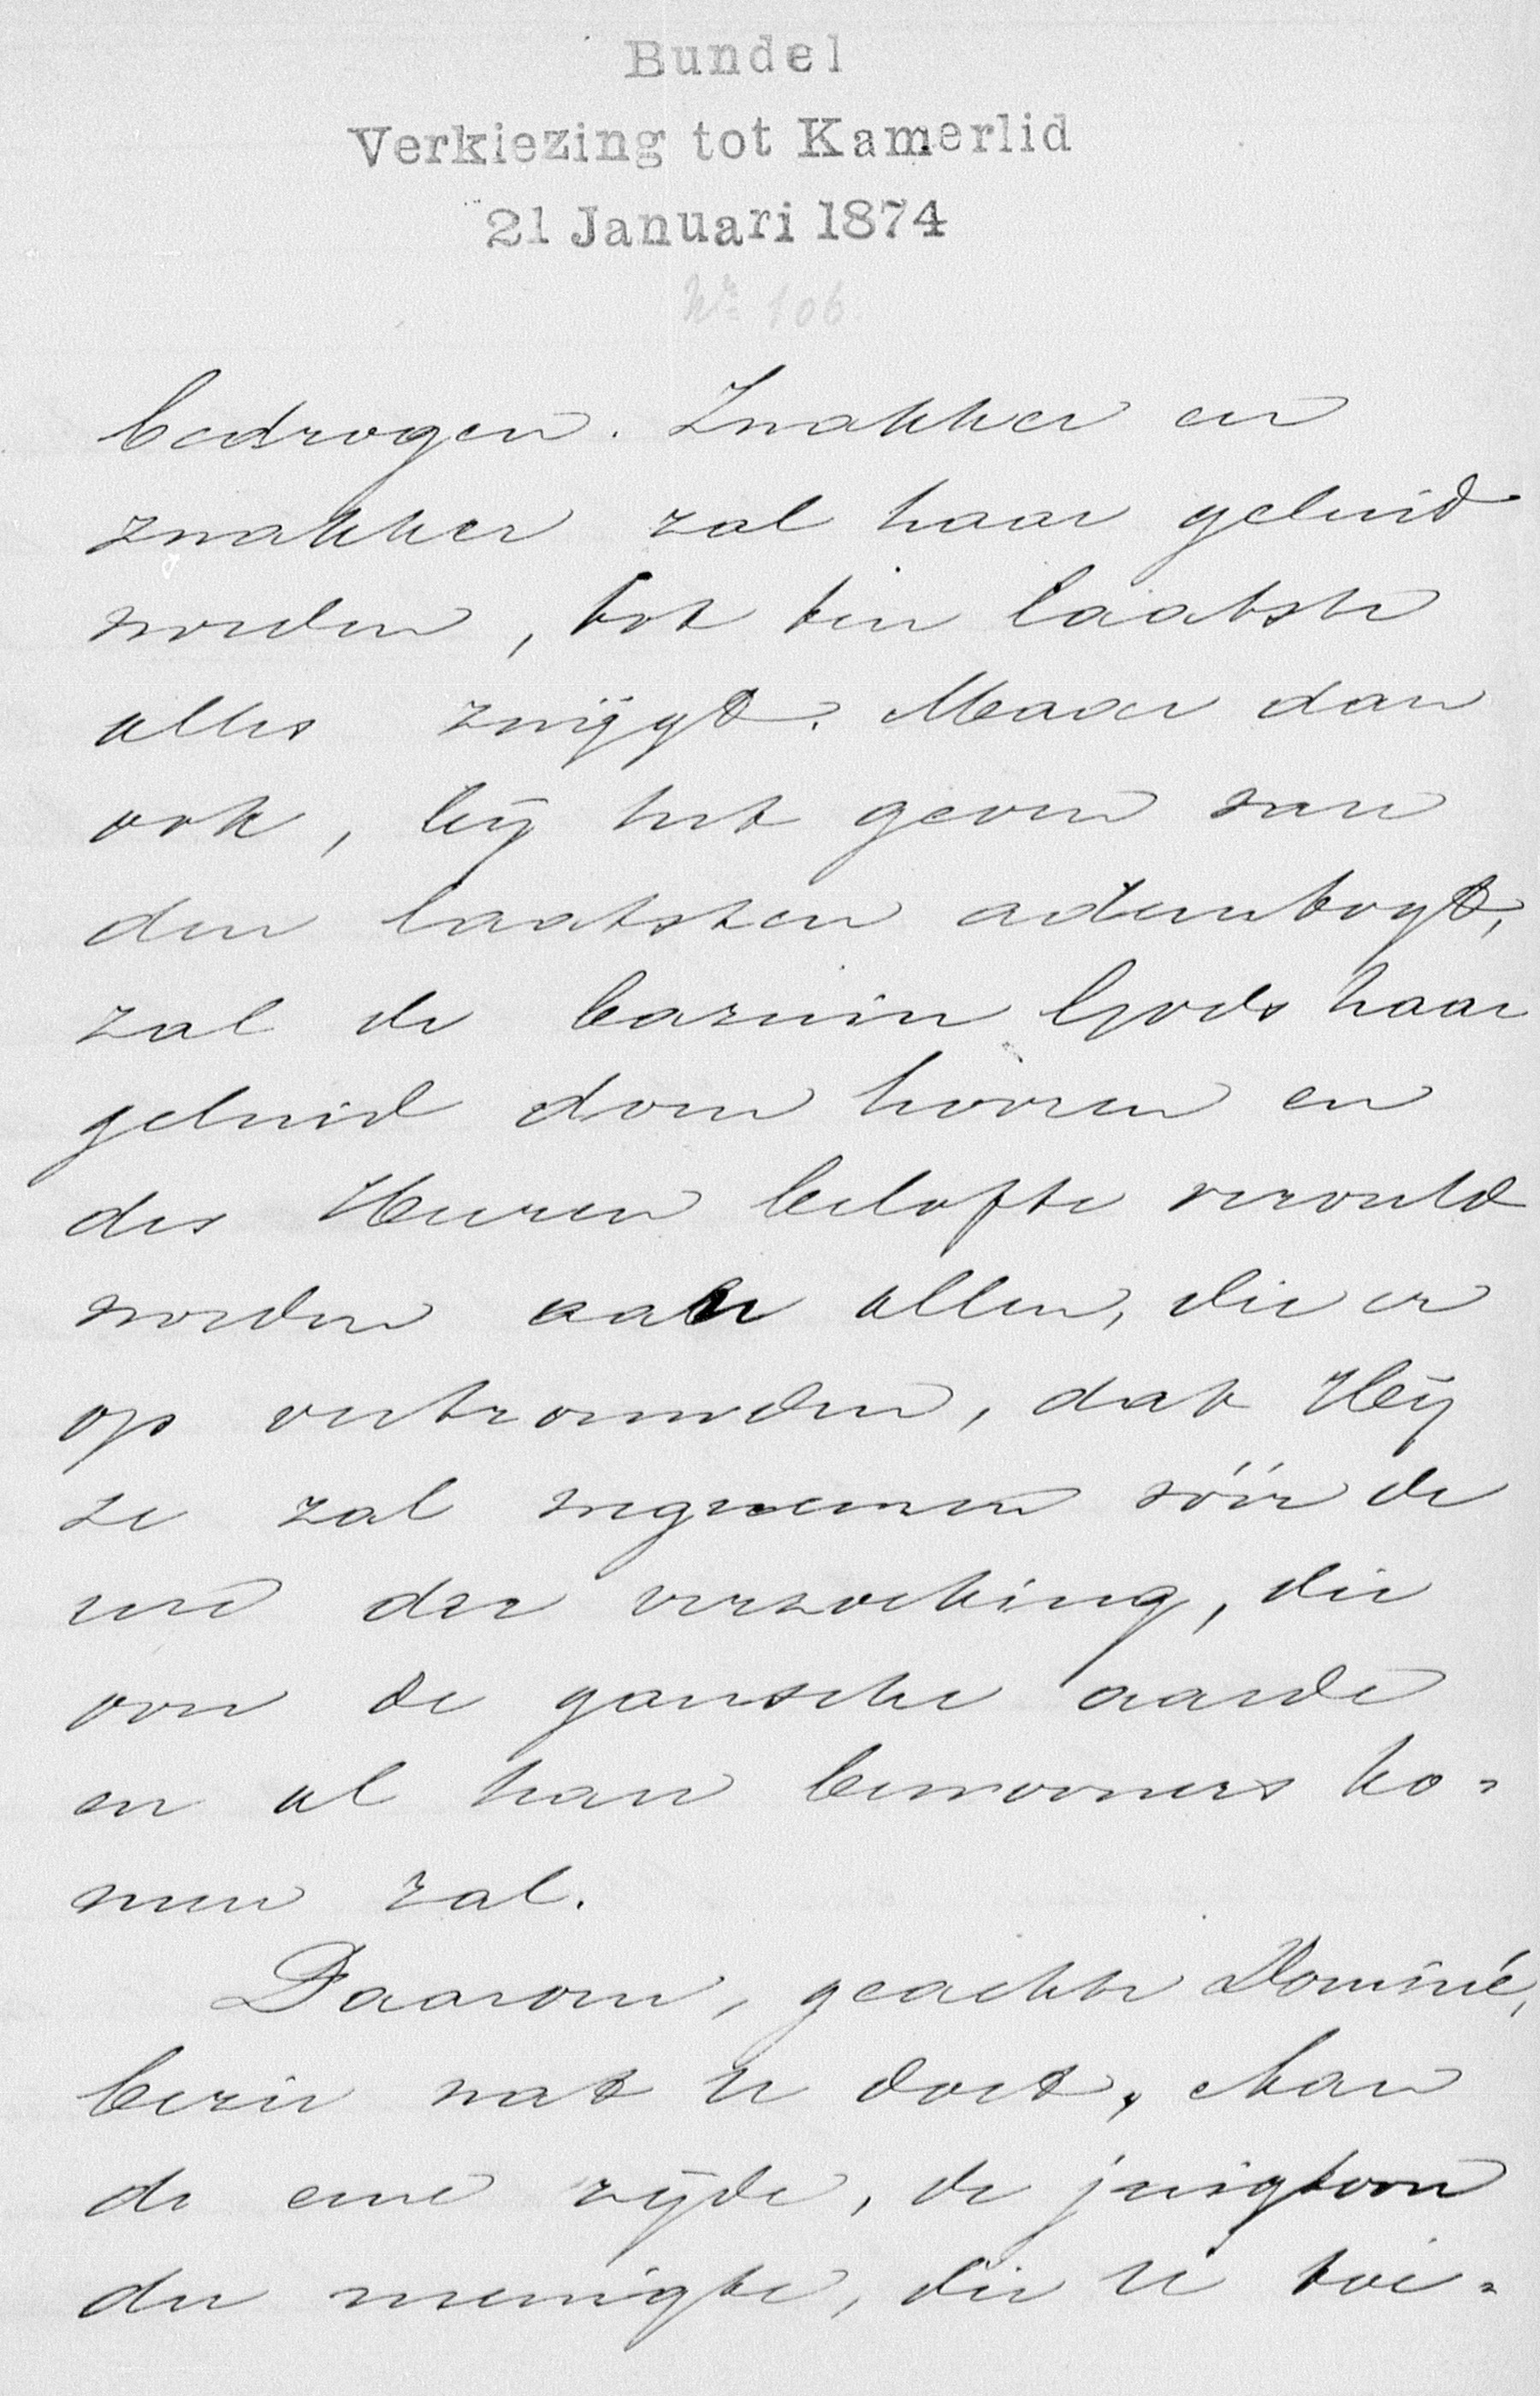 Bundel
Verkiezing tot Kamerlid
21 Januari 1874
No 106
bedrogen. Zwakker en
zwakker zal haar geluid
worden, tot ten laatste
alles zwijgt. Maar dan
ook, bij het geven van
den laatsten ademtogt,
zal de bazuin Gods haar
geluid doen hooren en
des Heeren belofte vervuld
worden aan allen, die er
op vertrouwden, dat Hij
ze zal wegnemen vóór de
ure der verzoeking, die
over de gansche aarde
en al haar bewoners ko=
men zal.
Daarom, geachte Dominé,
bezie wat U doet. Aan
de eene zijde, de juigtoon
der menigte, die U toe=